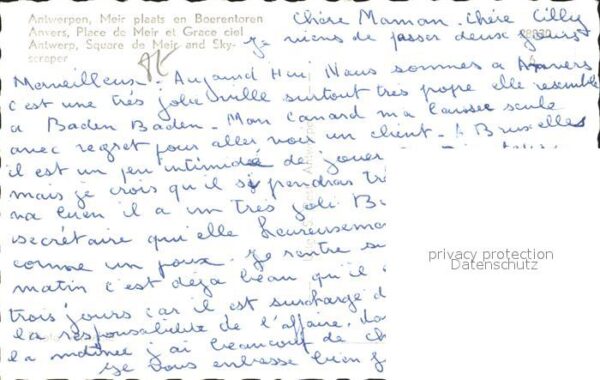 Antwerpen, Meir plaats en Boerentoren
Anvers, Place de Meir et Grace ciel
Antwerp, Square de Meir and Sky-
scraper
Chère Maman. Chère Cilly
Je viens de passer deux jours
Merveilleux. Aujourd Hui Nous sommes a Anvers
c'est une très jolie ville surtout très propre elle resemble
a Baden Baden. Mon Canard m'a laissée seule
avec regret pour aller voir un client. A Bruxelles
il est un peu intimidé de jouer
mais je crois qu'il s'y prendras trè
va bien il a un très joli B
secrétaire qu'elle heureusem
comme un poux. Je rentre
matin c'est déja beau qu'il
trois jours car il est surchargé d
la responsabilité de l'affaire.
la matinée j'ai beaucoup de ch
Je vous embrasse bien f
privacy protection
Datenschutz